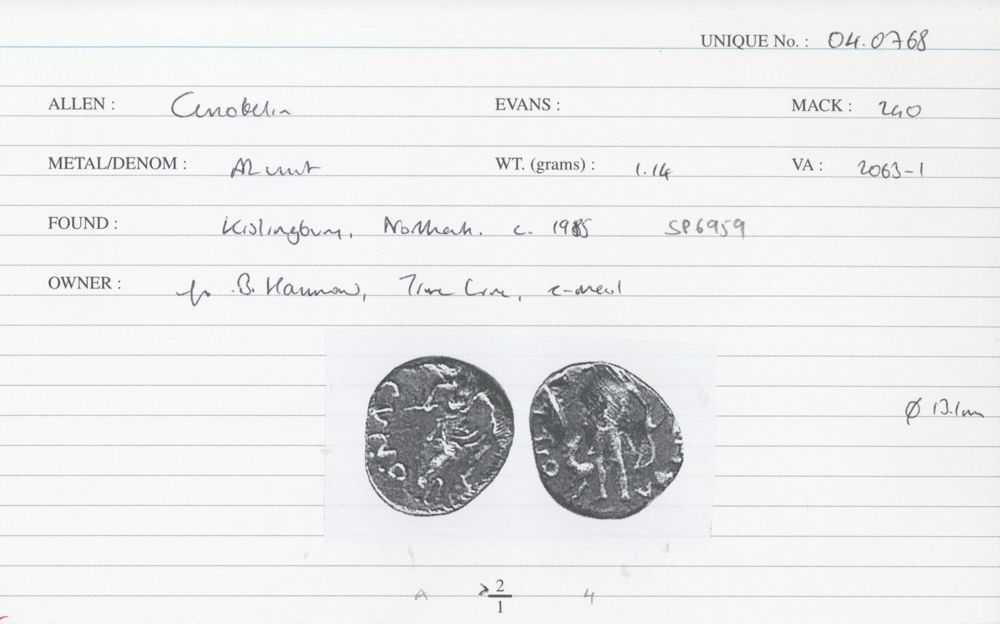 UNIQUE No. : 04.0768
ALLEN : Cunobelin EVANS : MACK : 240
METAL/DENOM : AR unit WT. (grams) : 1.14 VA : 2063-1
FOUND : Kislingbury, Northants. c. 1985 SP6959
OWNER : B. Hammond, Time Line, e-mail
CVNO
Ø 13.1mm
A 2 4
1